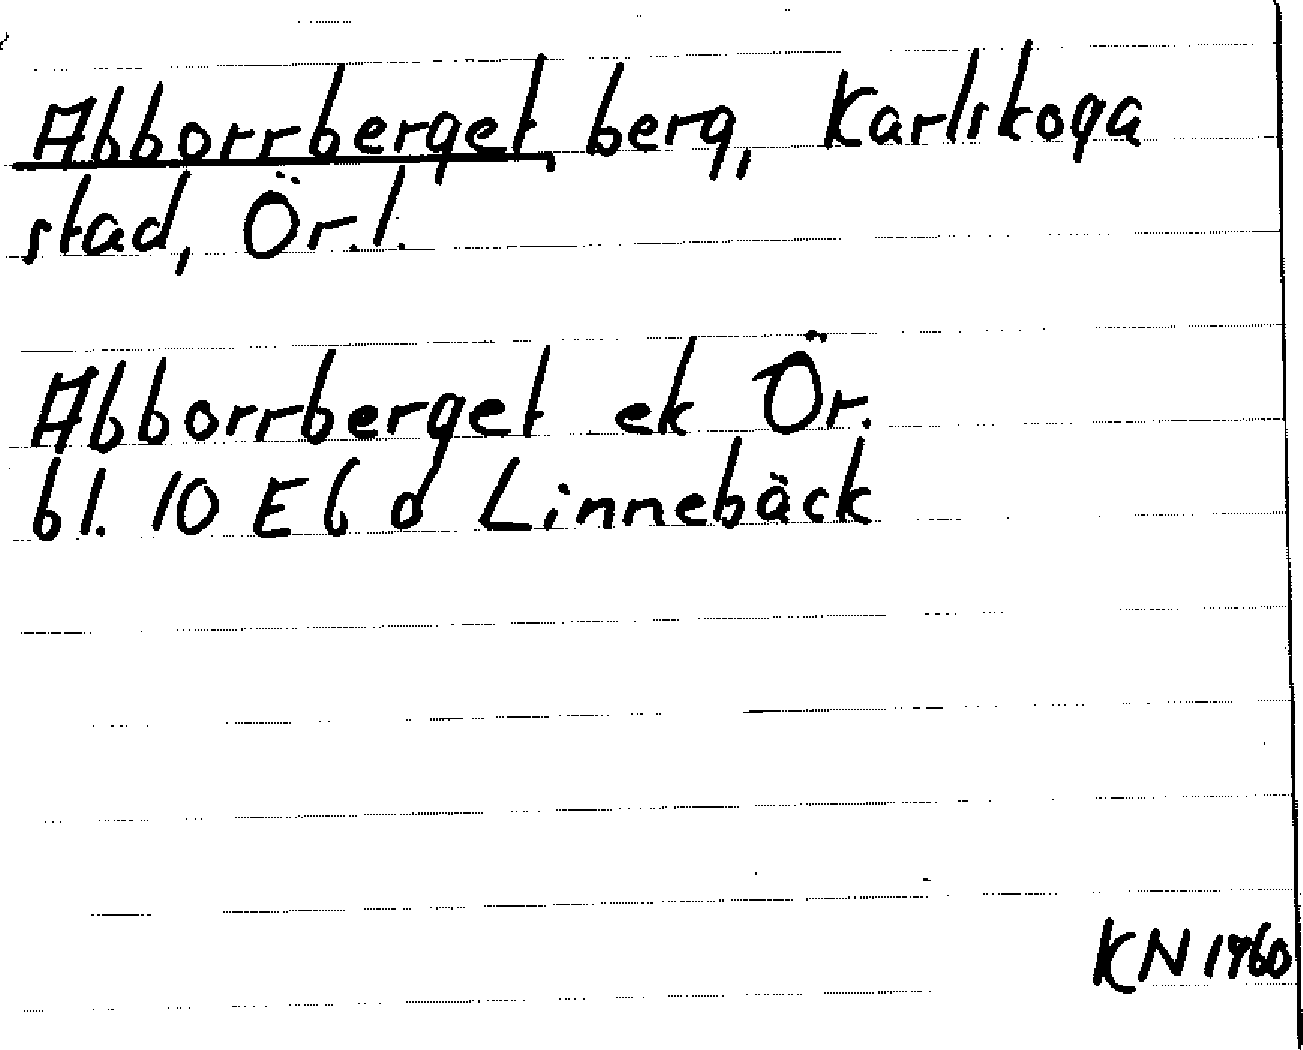 Abborrberget, berg, Karlskoga
stad, Ör.l.
Abborrberget ek Ör.
bl. 10 E 6 d Linnebäck
KN 1960